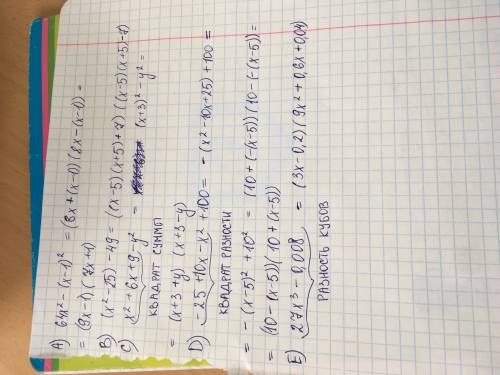 A) 64x² - (x-1)² = (8x+(x-1))(8x-(x-1)) =
= (9x-1)(7x+1)
B) (x²-25) - 49 = ((x-5)(x+5)+7)((x-5)(x+5)-7)
C) x² + 6x + 9 - y² = (x+3)² - y² =
КВАДРАТ СУММЫ
= (x+3+y)(x+3-y)
D) -25 + 10x - x² + 100 = -(x²-10x+25) + 100 =
КВАДРАТ РАЗНОСТИ
= -(x-5)² + 10² = (10+(-(x-5))(10-(-(x-5)) =
= (10-(x-5))(10+(x-5))
E) 27x³ - 0,008 = (3x-0,2)(9x²+0,6x+0,04)
РАЗНОСТЬ КУБОВ